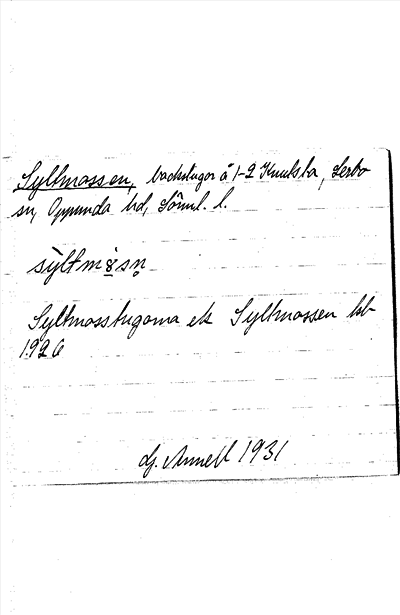 Syltmossen, backstugor å 1-2 Knutsta, Lerbo
sn, Oppunda hd, Söml. l.
sỳltmɤ̀sn̥
Syltmosstugorna el. Syltmossen hb
1926
Gj. Annell 1931